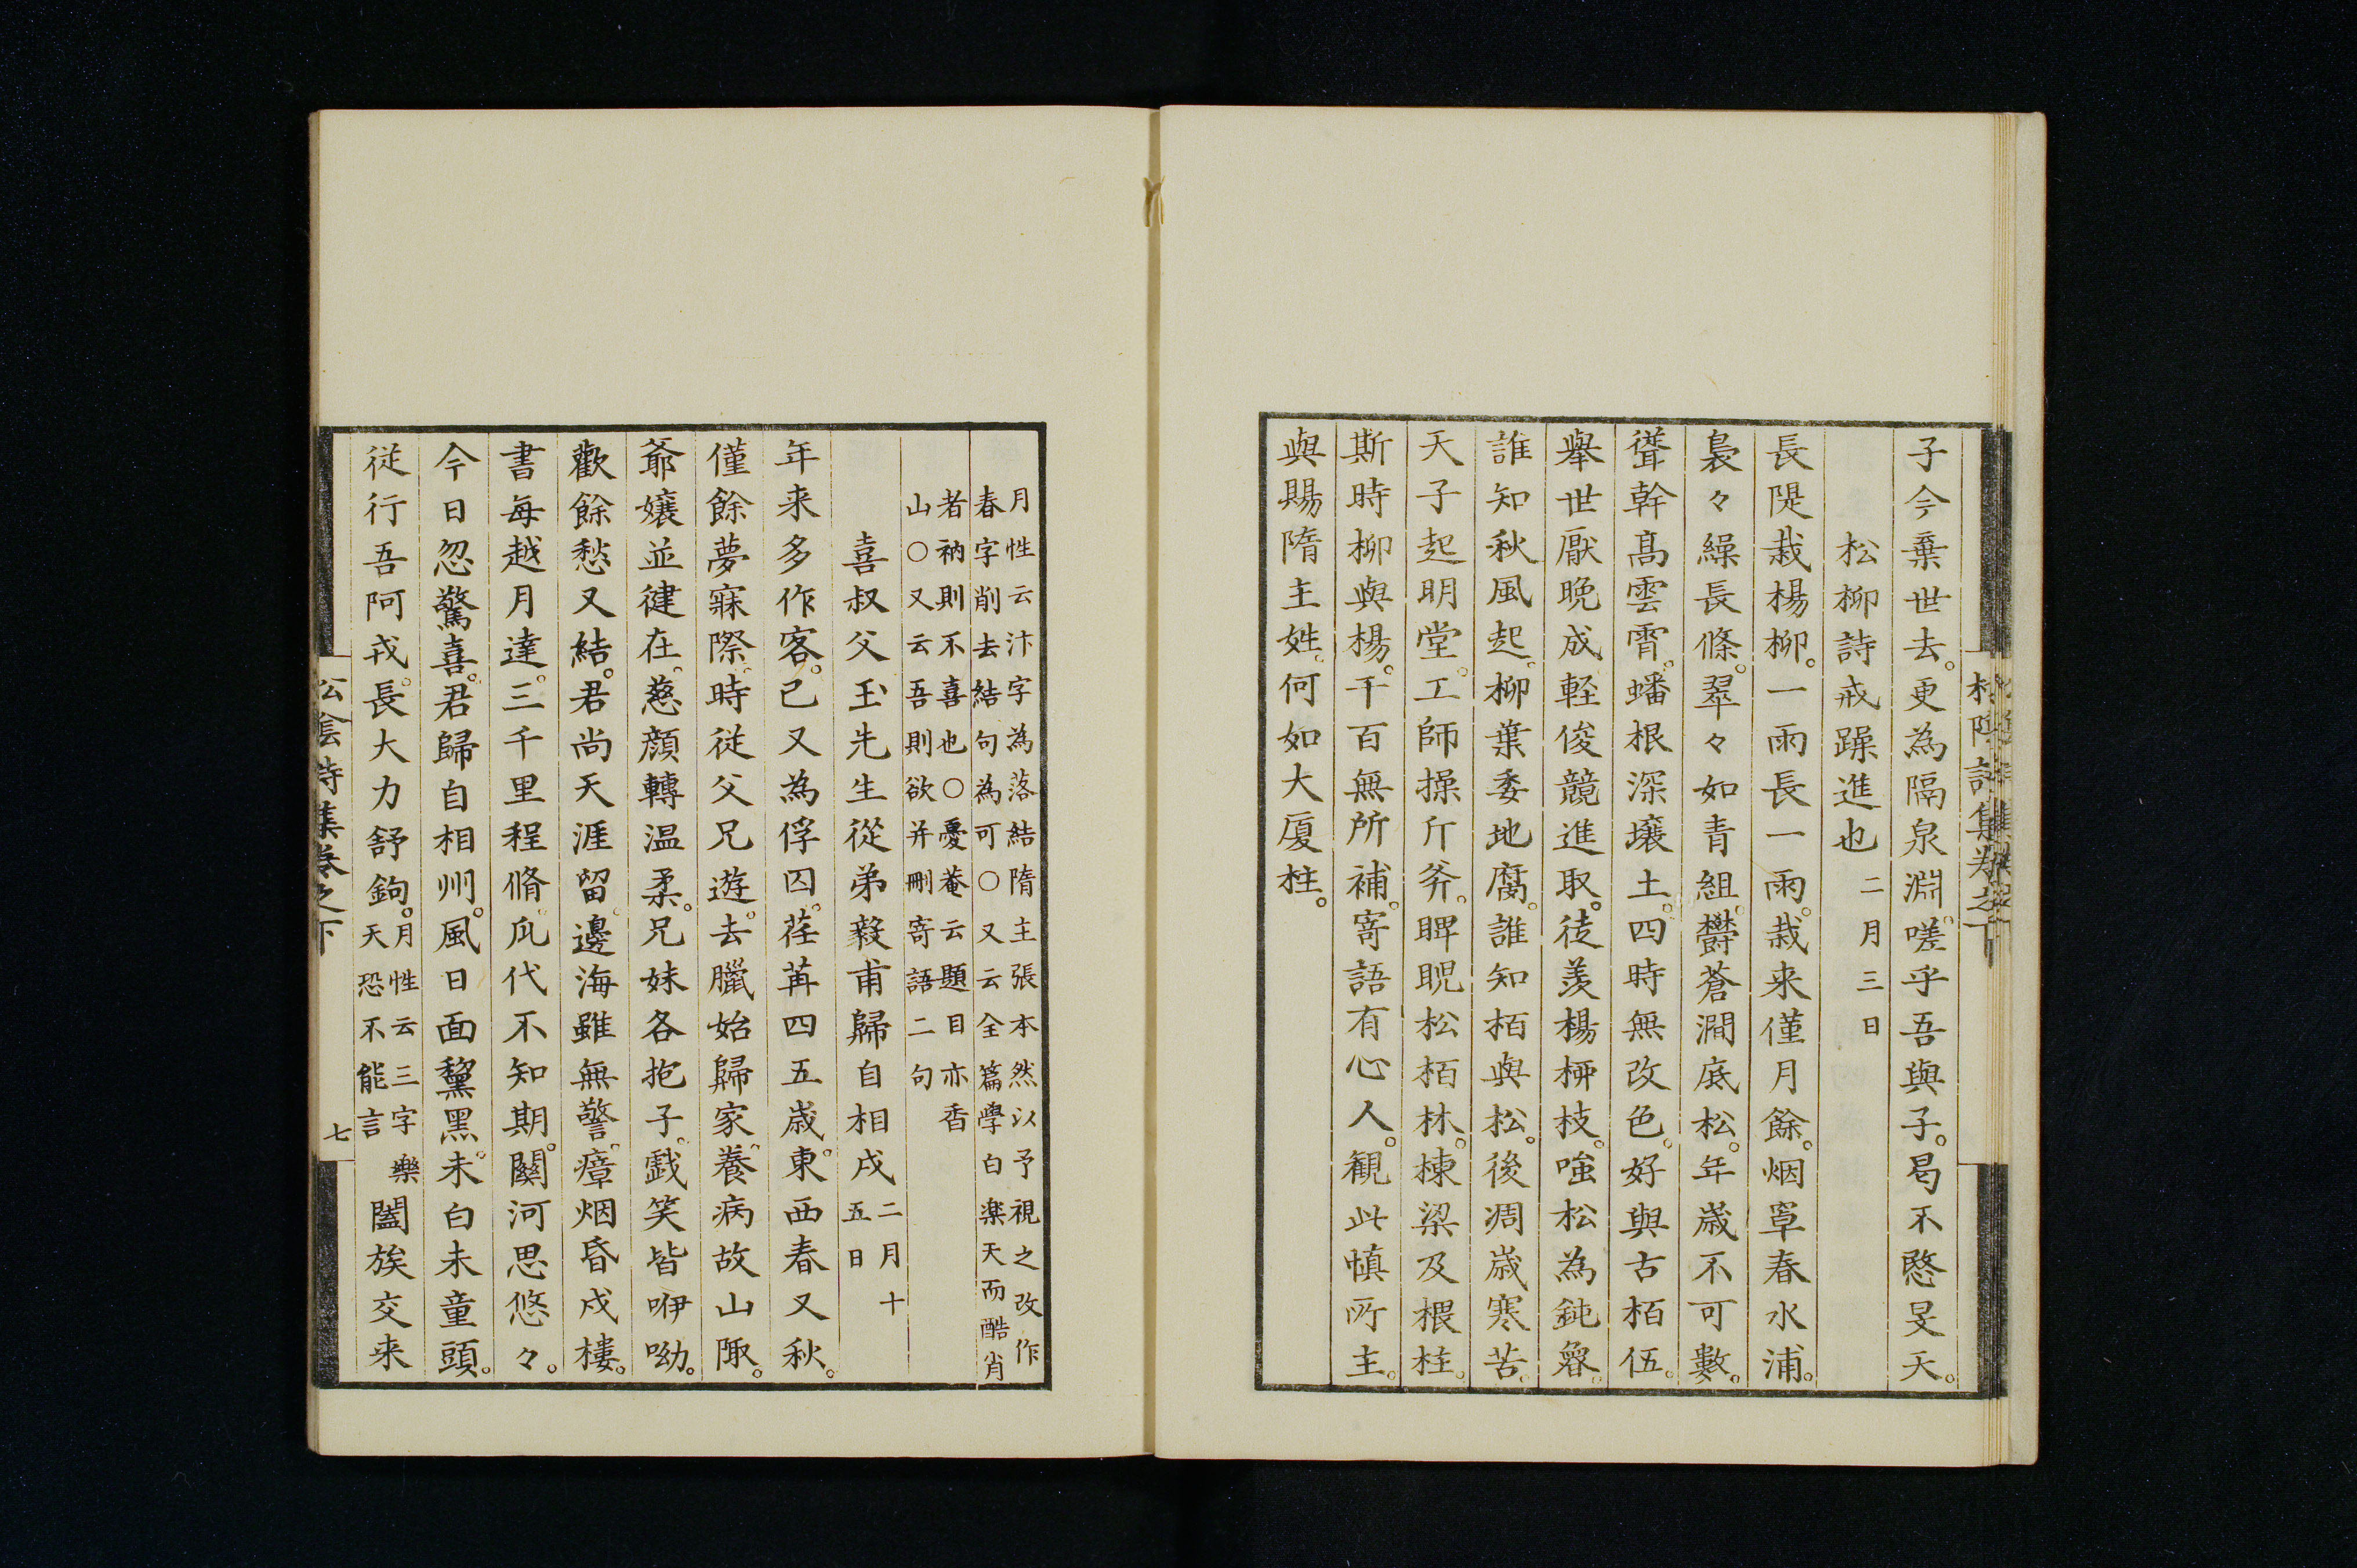 子今棄世去。更為隔泉淵。嗟乎吾與子。曷不愍旻天。
松柳詩戒躁進也 二月三日
長隄栽楊柳。一雨長一雨。栽来僅月餘。烟罩春水浦。
裊々繰長條。翠々如青組。欝蒼澗底松。年歳不可數。
聳幹髙雲霄。蟠根深壌土。四時無改色。好與古栢伍。
舉世厭晩成輕俊競進取。徒羡楊柳枝。嗤松為鈍魯。
誰知秋風起。柳葉委地腐。誰知栢與松。後凋歳寒苦。
天子起明堂。工師操斤斧。睥睨松栢林。棟梁及椳柱。
斯時柳與楊。千百無所補。寄語有心人。観此慎所主。
與賜隋主姓。何如大厦柱。
月性云汴字為落結隋主張本然以予視之改作
春字削去結句為可○又云全篇學白楽天而酷肖
者衲則不喜也○憂菴云題目亦香
山○又云吾則欲并刪寄語二句
喜叔父玉先生從弟毅甫歸自相戍 二月十
五日
年来多作客。已又為俘囚。荏苒四五歳。東西春又秋。
僅餘夢寐際。時従父兄遊。去臘始歸家。養病故山陬。
爺嬢並健在。慈顔轉温柔。兄妹各抱子。戯笑皆咿呦。
歡餘愁又結。君尚天涯留。邊海雖無警。瘴烟昏戍樓。
書毎越月達。三千里程脩。瓜代不知期。關河思悠々。
今日忽驚喜。君歸自相州。風日面黧黑。未白未童頭。
従行吾阿戎。長大力舒鉤。月性云三字樂
天恐不能言
闔族交来
松陰詩集巻之下
七